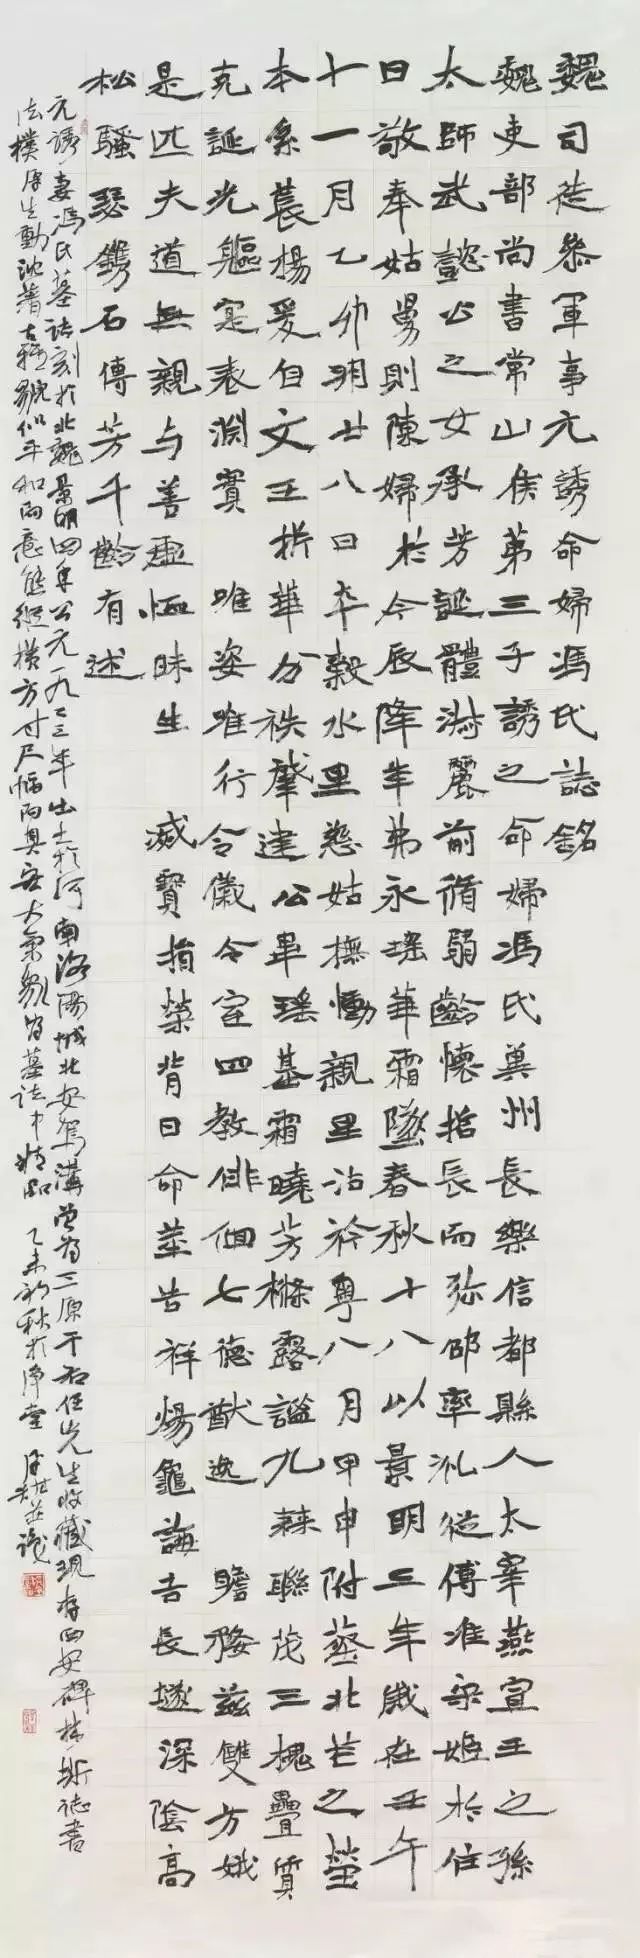 魏司徒參軍事元誘命婦馮氏誌銘
魏吏部尚書常山侯第三子誘之命婦馮氏冀州長樂信都縣人太宰燕宣王之孫
太師武懿公之女承芳誕體淑麗前脩弱齡懷哲長而弥邵率礼從傅准宋姬於往
日敬奉姑舅則陳婦於今辰降年弗永瑤華霜墜春秋十八以景明三年歲在壬午
十一月乙卯朔廿八日卒穀水里慈姑撫慟親里沾衿粵八月甲申附葬北芒之塋
本系萇楊爰自文王析華分袟肇建公畢瑤基霜曉芳條露謐九棘聯茂三槐疊質
克誕光軀寔表淵實 唯姿唯行令儀令室四教俳佪七德猷逸 瞻務茲雙方娥
是匹夫道無親与善虛恒昧生 滅賢損榮背日命莖告祥煬龜誨吉長埏深陰高
松騷瑟鐫石傳芳千齡有述
元誘妻馮氏墓誌刻於北魏景明四年公元一九二三年出土於河南洛陽城北安駕溝曾為三原于右任先生收藏現存西安碑林斯誌書
法樸厚生動沈著古雅貌似平和而意態縱橫方寸尺幅而具宏大氣象為墓誌中精品 乙未初秋於淨堂